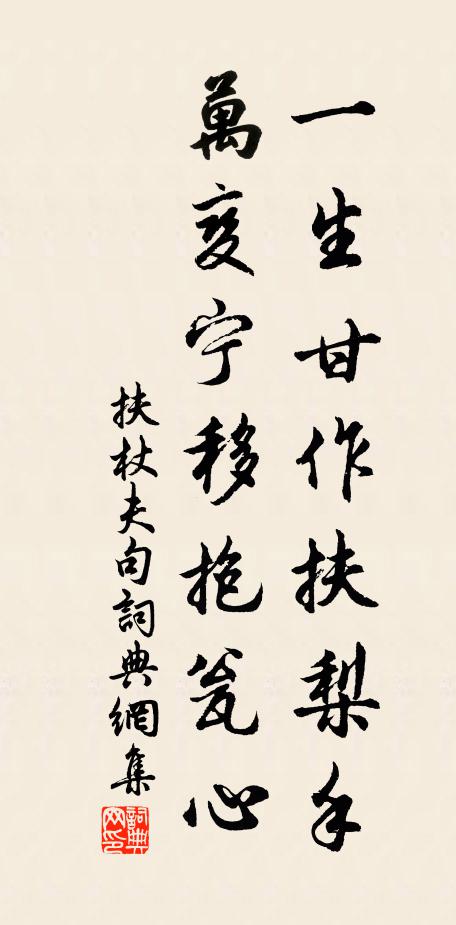 一生甘作扶犁手
萬变宁移抱瓮心
扶杖夫句詞典網集
詞典网印